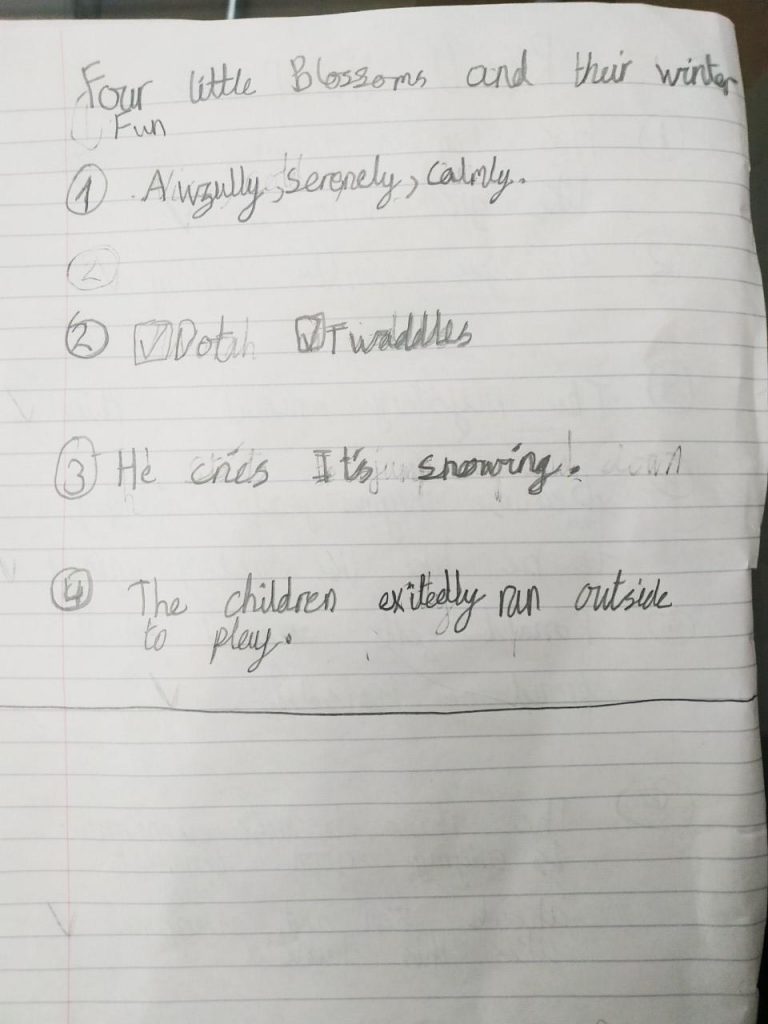 Four little Blossoms and their winter
Fun
① Awzully, Serenely, Calmly.
②
② ☑ Dotah ☑ Twaddles
③ He cries It's snowing.
④ The children exitedly ran outside
to play.